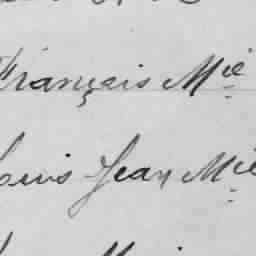 François Mie
Louis Jean Mie